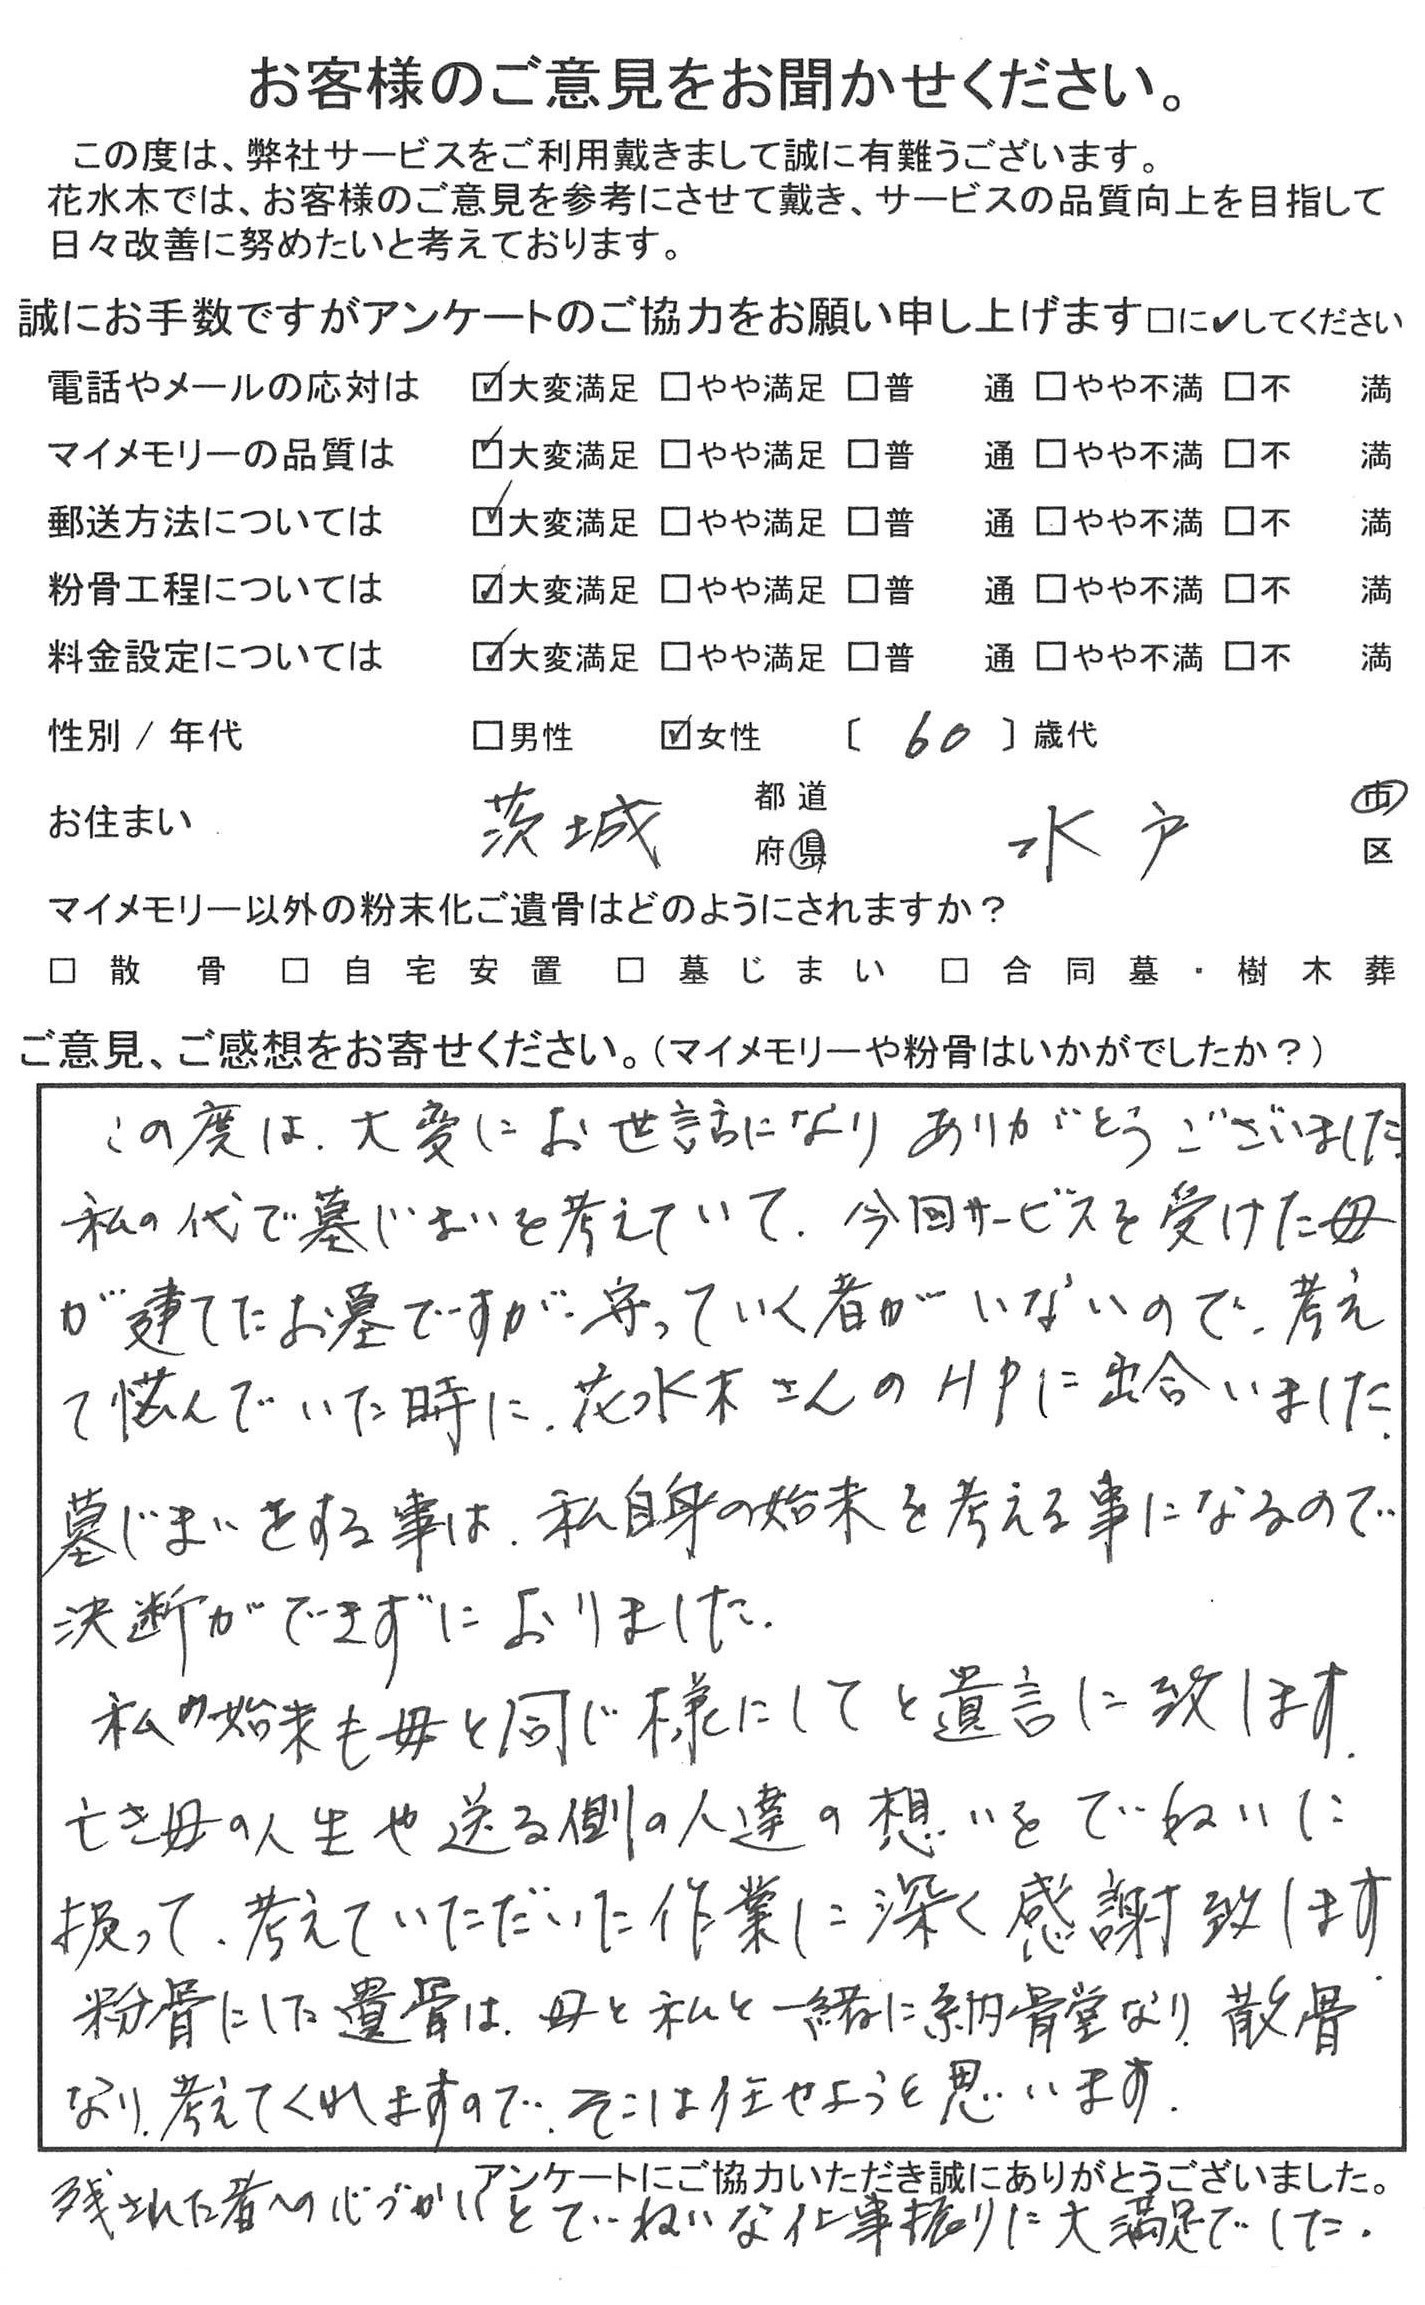 お客様のご意見をお聞かせください。
この度は、弊社サービスをご利用戴きまして誠に有難うございます。
花水木では、お客様のご意見を参考にさせて戴き、サービスの品質向上を目指して
日々改善に努めたいと考えております。
誠にお手数ですがアンケートのご協力をお願い申し上げます□に✔してください
電話やメールの応対は ☑大変満足 □やや満足 □普　通 □やや不満 □不　満
マイメモリーの品質は ☑大変満足 □やや満足 □普　通 □やや不満 □不　満
郵送方法については ☑大変満足 □やや満足 □普　通 □やや不満 □不　満
粉骨工程については ☑大変満足 □やや満足 □普　通 □やや不満 □不　満
料金設定については ☑大変満足 □やや満足 □普　通 □やや不満 □不　満
性別 / 年代 □男性 ☑女性 〔 60 〕歳代
お住まい 茨城 都道府県 水戸 市区
マイメモリー以外の粉末化ご遺骨はどのようにされますか？
□ 散骨 □ 自宅安置 □ 墓じまい □ 合同墓・樹木葬
ご意見、ご感想をお寄せください。（マイメモリーや粉骨はいかがでしたか？）
この度は、大変にお世話になりありがとうございました
私の代で墓じまいを考えていて、今回サービスを受けた母
が建てたお墓ですが、守っていく者がいないので、考え
て悩んでいた時に、花水木さんのHPに出合いました。
墓じまいをする事は、私自身の始末を考える事になるので
決断ができずにおりました。
私の始末も母と同じ様にしてと遺言に致します。
亡き母の人生や送る側の人達の想いをていねいに
扱って、考えていただいた作業に深く感謝致します。
粉骨にした遺骨は、母と私と一緒に納骨堂なり、散骨
なり、考えてくれますので、そこは任せようと思います。
アンケートにご協力いただき誠にありがとうございました。
残された者への心づかいとていねいな仕事振りに大満足でした。